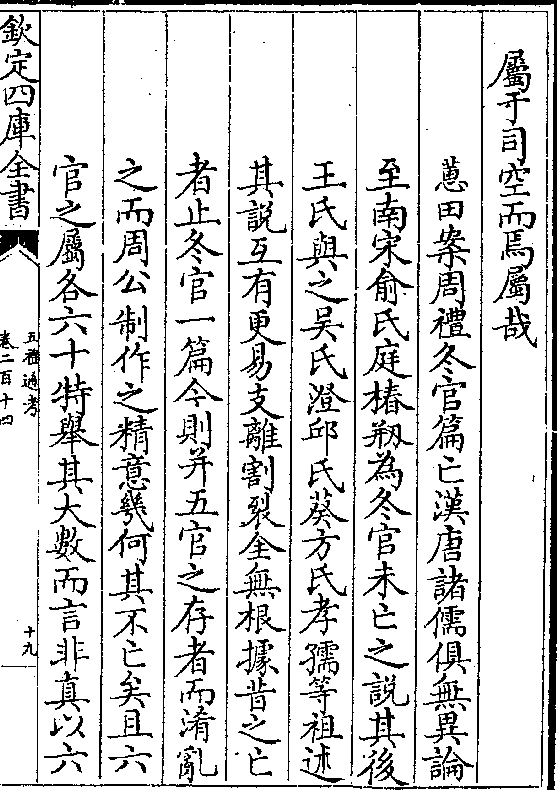 屬于司空而焉屬哉
蕙田案周禮冬官篇亡漢唐諸儒俱無異論
至南宋俞氏庭椿剏為冬官未亡之說其後
王氏與之吳氏澄邱氏葵方氏孝孺等祖述
其說互有更易支離割裂全無根據昔之亡
者止冬官一篇今則并五官之存者而淆亂
之而周公制作之精意幾何其不亡矣且六
官之屬各六十特舉其大數而言非真以六
欽定四庫全書
五禮通考
卷二百十四
十九